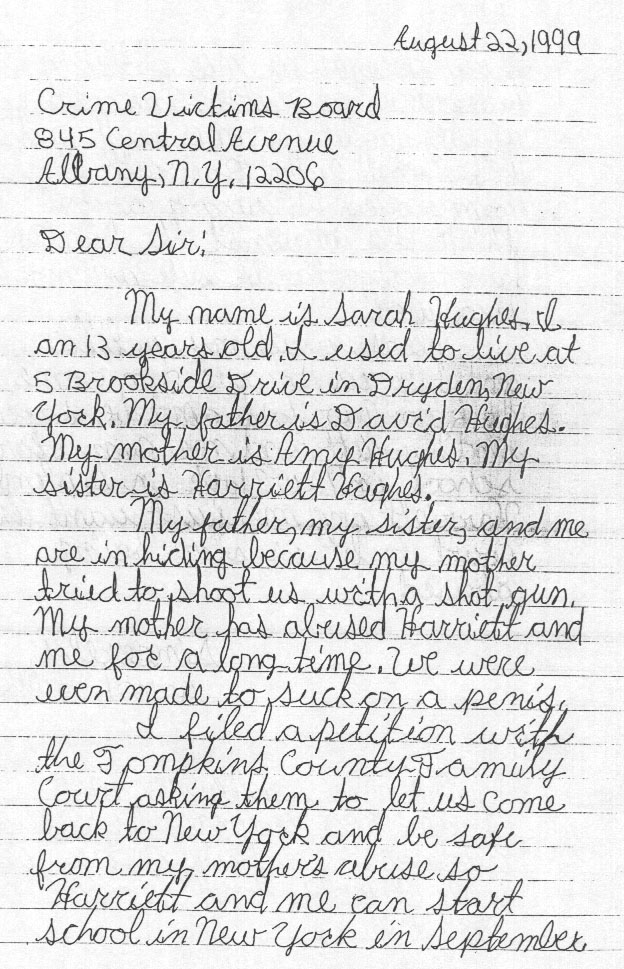 August 22, 1999
Crime Victims Board
845 Central Avenue
Albany, N.Y. 12206
Dear Sir:
My name is Sarah Hughes. I
an 13 years old. I used to live at
5 Brookside Drive in Dryden, New
York. My father is David Hughes.
My mother is Amy Hughes. My
sister is Harriett Hughes.
My father, my sister, and me
are in hiding because my mother
tried to shoot us with a shot gun.
My mother has abused Harriett and
me for a long time. We were
even made to suck on a penis.
I filed a petition with
the Tompkins County Family
Court asking them to let us come
back to New York and be safe
from my mother's abuse so
Harriett and me can start
school in New York in September